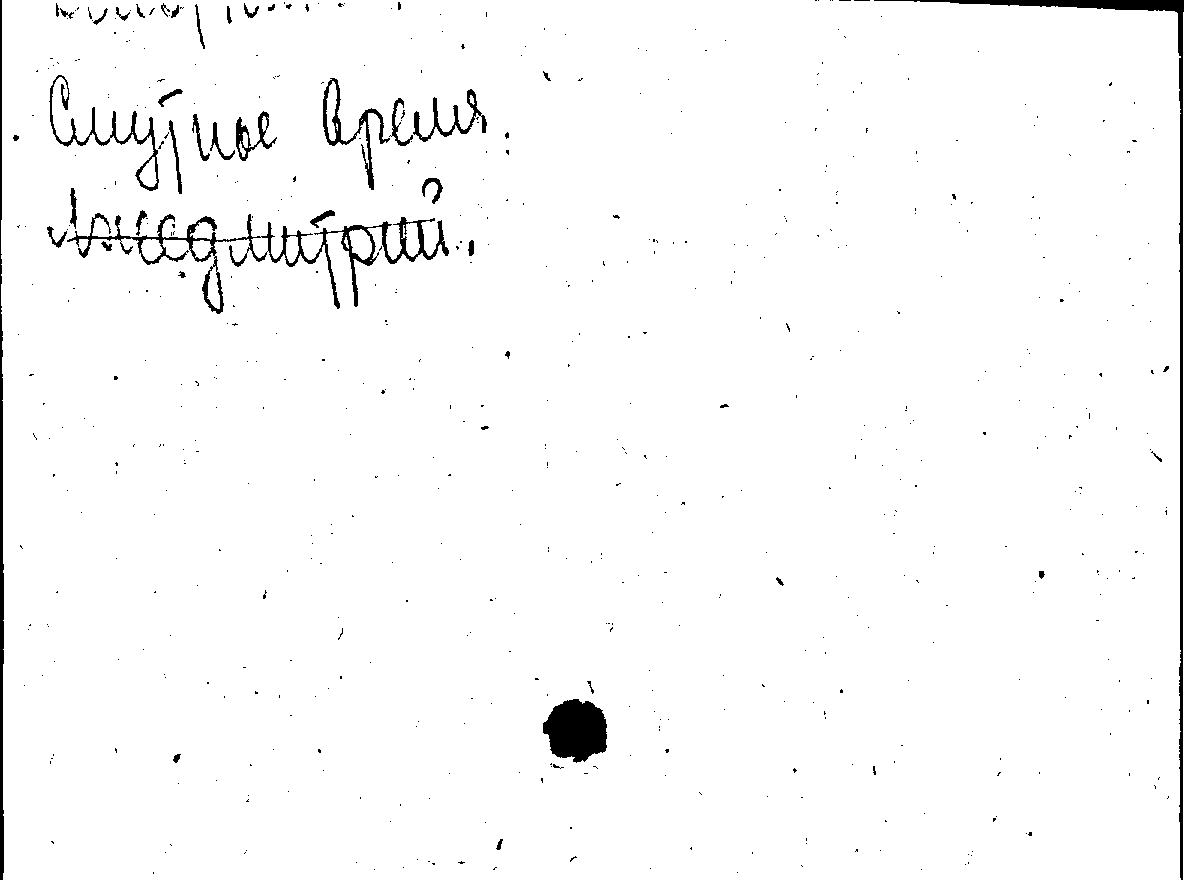 Смутное время.
Лжедмитрий.